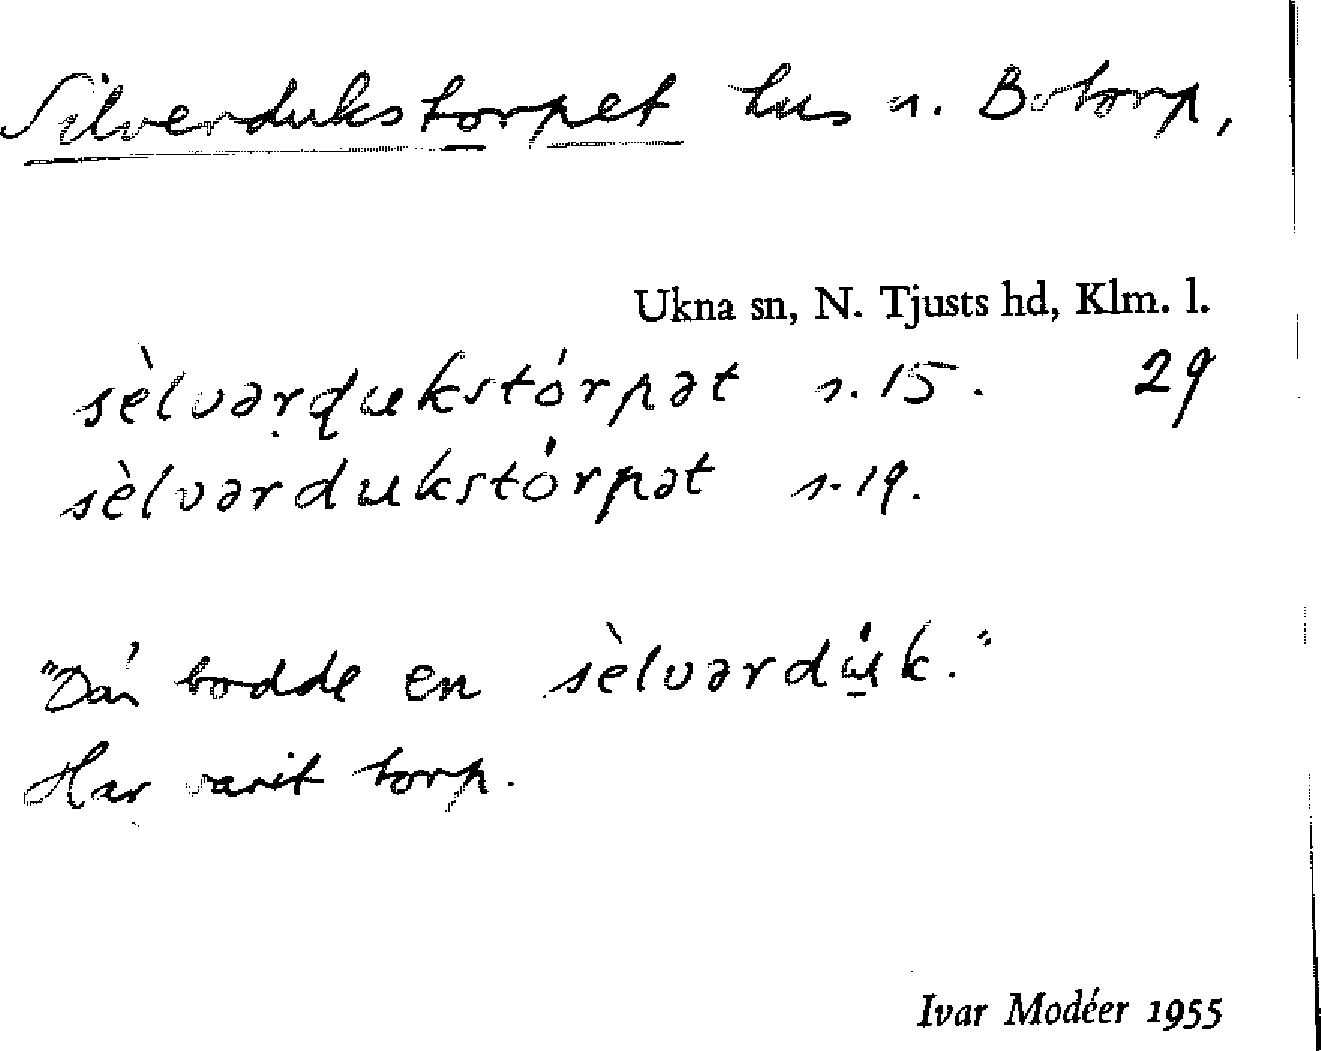 Silverdukstorpet hus u. Botorp,
Ukna sn, N. Tjusts hd, Klm. l.
sèlvəṛḍukstórpət s. 15. 29
sèlvərdukstórpət s. 19.
"Där bodde en sèlvərdúk."
Har varit torp.
Ivar Modéer 1955